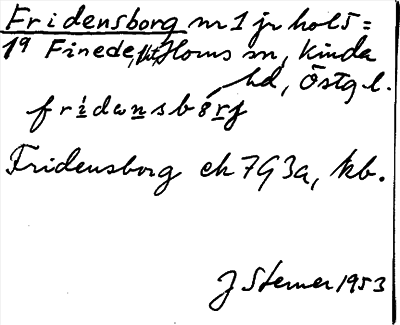 Fridensborg nr 1 jr hol5 =
1⁹ Finede, Horns sn, Kinda
hd, Östg l.
fridənsbɞrj
Fridensborg ek 7G 3a, kb.
J Sterner 1953